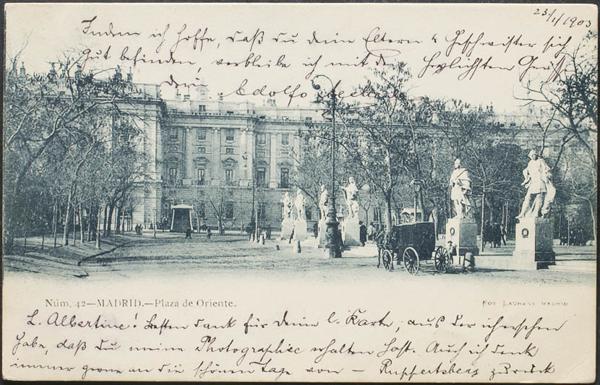 23/1/1903
Indem ich hoffe, daß du dein Eltern & Geschwister sich
gut befinden, verbleibe ich mit den herzlichsten Gruß
dein Adolfo
Núm. 42—MADRID.—Plaza de Oriente.
FOT. LAURENT MADRID
L. Albertine! Besten dank für deine l. Karte, aus der ich ersehen
habe, daß du meine Photographie erhalten hast. Auch ich denk
immer gerne an die schönen Tage von — Ruppertsberg zurück